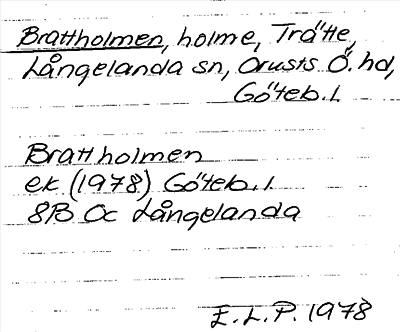 Brattholmen, holme, Trätte,
Långelanda sn, Orusts Ö. hd,
Göteb. l.
Brattholmen
ek (1978) Göteb. l.
8B Oc Långelanda
E. L. P. 1978